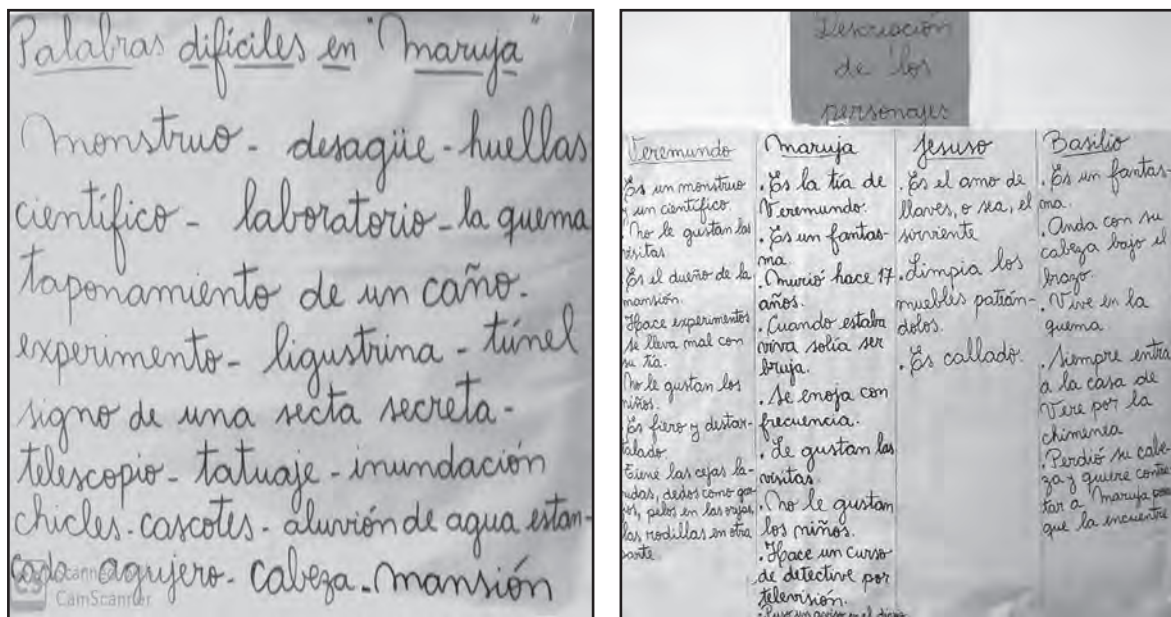 Palabras difíciles en "Maruja"
Monstruo - desagüe - huellas
científico - laboratorio - la quema
taponamiento de un caño.
experimento - ligustrina - túnel
signo de una secta secreta -
telescopio - tatuaje - inundación
chicles - cascotes - aluvión de agua estan-
cada agujero - cabeza - mansión
CamScanner
Descripción
de los
personajes
Veremundo
Es un monstruo
y un científico.
No le gustan las
visitas
Es el dueño de la
mansión.
Hace experimentos
se lleva mal con
su tía.
No le gustan los
niños.
Es fiero y destar-
talado.
Tiene las cejas la-
nudas, dedos como
pelos en las orejas,
las rodillas en otra
parte.
Maruja
. Es la tía de
Veremundo.
. Es un fantas-
ma.
. Murió hace 17
años.
. Cuando estaba
viva solía ser
bruja.
. Se enoja con
frecuencia.
. Le gustan las
visitas.
. No le gustan
los niños.
. Hace un curso
de detective por
televisión.
. Puso un aviso en el diario
Jesuso
. Es el amo de
llaves, o sea, el
sirviente
. Limpia los
muebles patián-
dolos.
. Es callado.
Basilio
. Es un fantas-
ma.
. Anda con su
cabeza bajo el
brazo.
. Vive en la
quema.
. Siempre entra
a la casa de
Vere por la
chimenea
. Perdió su cabe-
za y quiere contra-
tar a Maruja para
que la encuentre